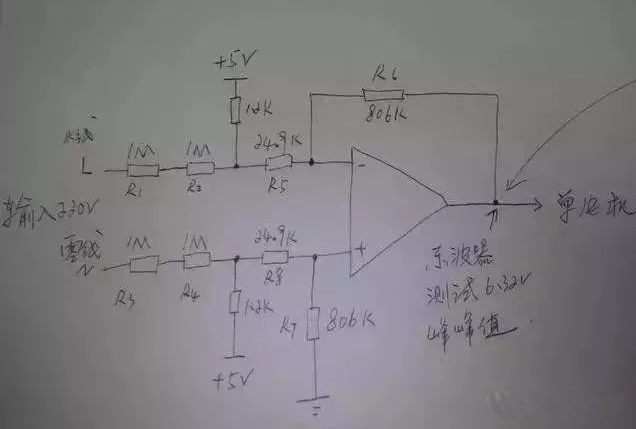 +5V
R6
806K
12K
火线
L
1M
1M
24.9K
R1
R2
R5
-
输入220V
单片机
零线
N
1M
1M
24.9K
+
R3
R4
R8
示波器
测试6.32V
峰峰值
12K
R7
806K
+5V